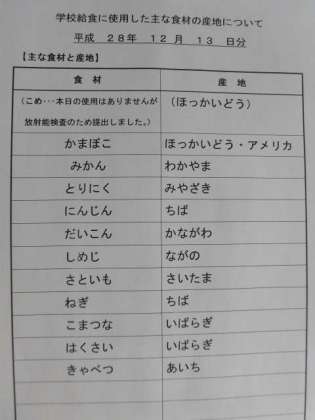 学校給食に使用した主な食材の産地について
平成 28年 12月 13日分
【主な食材と産地】
食材 産地
(こめ・・・本日の使用はありませんが (ほっかいどう)
放射能検査のため提出しました。)
かまぼこ ほっかいどう・アメリカ
みかん わかやま
とりにく みやざき
にんじん ちば
だいこん かながわ
しめじ ながの
さといも さいたま
ねぎ ちば
こまつな いばらぎ
はくさい いばらぎ
きゃべつ あいち